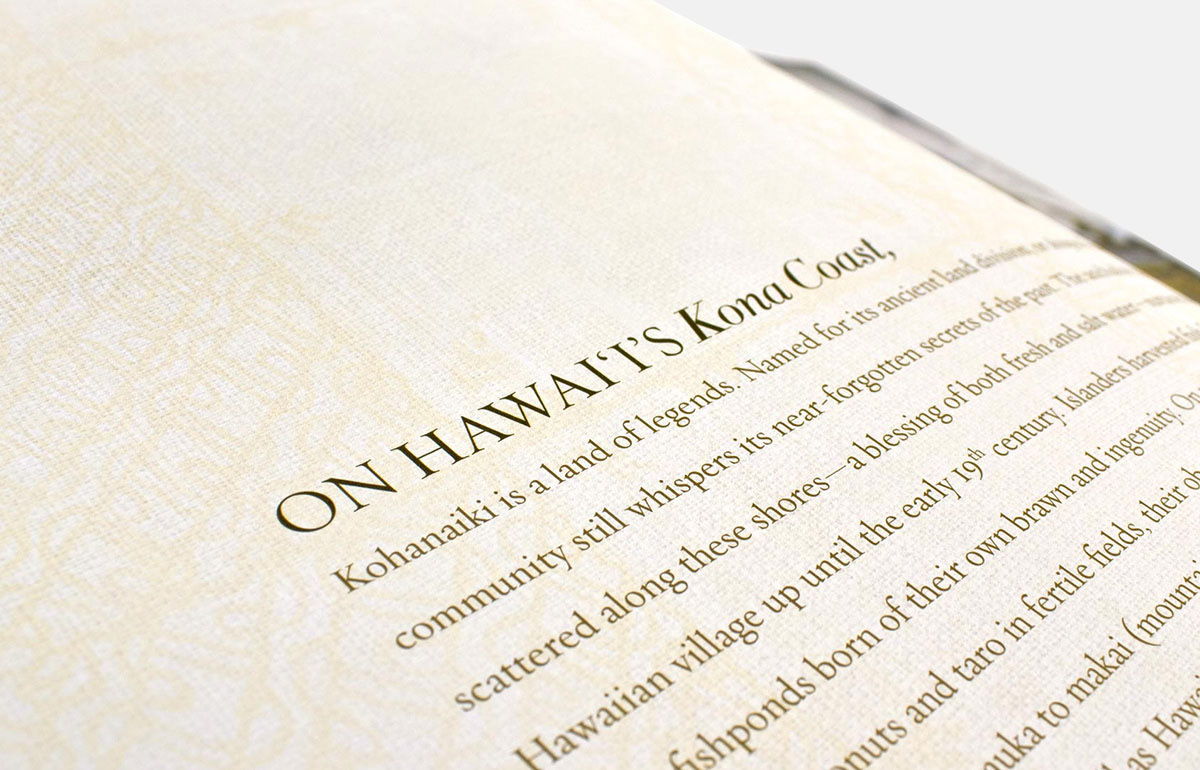 ON HAWAI‘I’S Kona Coast,
Kohanaiki is a land of legends. Named for its ancient land division, or
community still whispers its near-forgotten secrets of the past. The
scattered along these shores—a blessing of both fresh and salt water—
Hawaiian village up until the early 19th century. Islanders harvested
fishponds born of their own brawn and ingenuity. On
onuts and taro in fertile fields, their
auka to makai
as